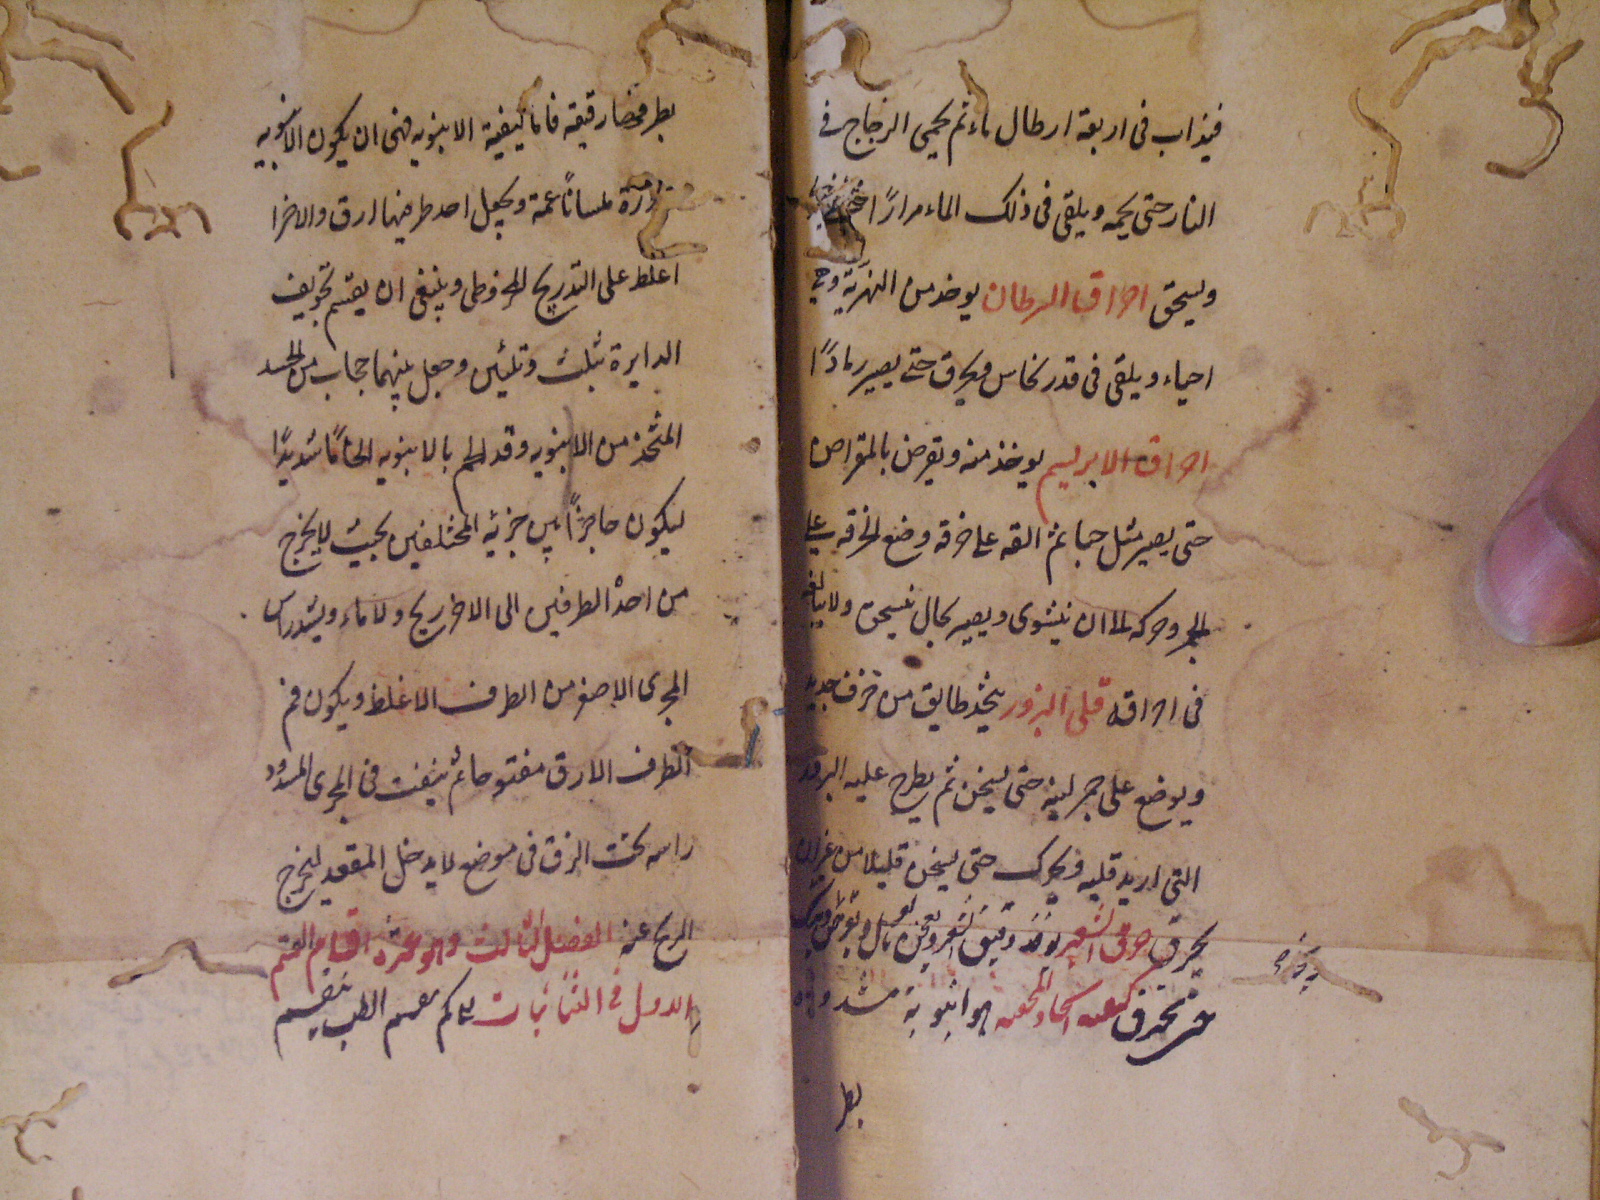 فيذاب فى اربعة ارطال ماء ثم يحمى الزجاج فى
النار حتى يحمه ويلقى فى ذلك الماء مرارًا
ويسحق احراق السرطان يوخذ من النهرية وهى
احياء ويلقى فى قدر نحاس ويحرق حتى يصير رمادًا
احراق الابريسم يوخذ منه ويقرض بالمقراض
حتى يصير مثل ثم القه على خرقه وضع الخرقه على
الجمر وحركه الى ان ينشوى ويصير بحال ينسحق ولا يبالغ
فى احراقه قلى البزور يتخذ طابق من خزف جديد
ويوضع على جمر لينه حتى يسخن ثم يطرح عليه البزور
التى اريد قليه ويحرك حتى يسخن قليلا من غير ان
يحرق حرق الشعير يوخذ دقيق الشعير ويعجن
حتى يحترق هو انبوبة مشدوده
بطر
بطرفها رقيقه فاما كيفية الانبوبه فهى ان يكون الانبوبه
ويجعل احد طرفيها ارق والاخر
اغلظ على التدريج المخروطى وينبغى ان يقسم تجويف
الدايرة بثلث وثلثين وجعل بينهما حجاب من الجسد
المتخذ من الانبوبه وقد الحم بالانبوبه الحامًا شديدًا
ليكون حاجزًا بين جزئيه المختلفين بحيث لا يخرج
من احد الطرفين الى الاخر ريح ولا ماء ويشد راس
المجرى الاصغر من الطرف الاغلظ ويكون فم
الطرف الارق مفتوحا ثم ينفت فى المجرى المسدود
راسه تحت الزق فى موضع لا يدخل المقعد ليخرج
الريح عنه الفصل الثالث وهو عشرة اقسام القسم
الاول فى النباتات الطب ينقسم